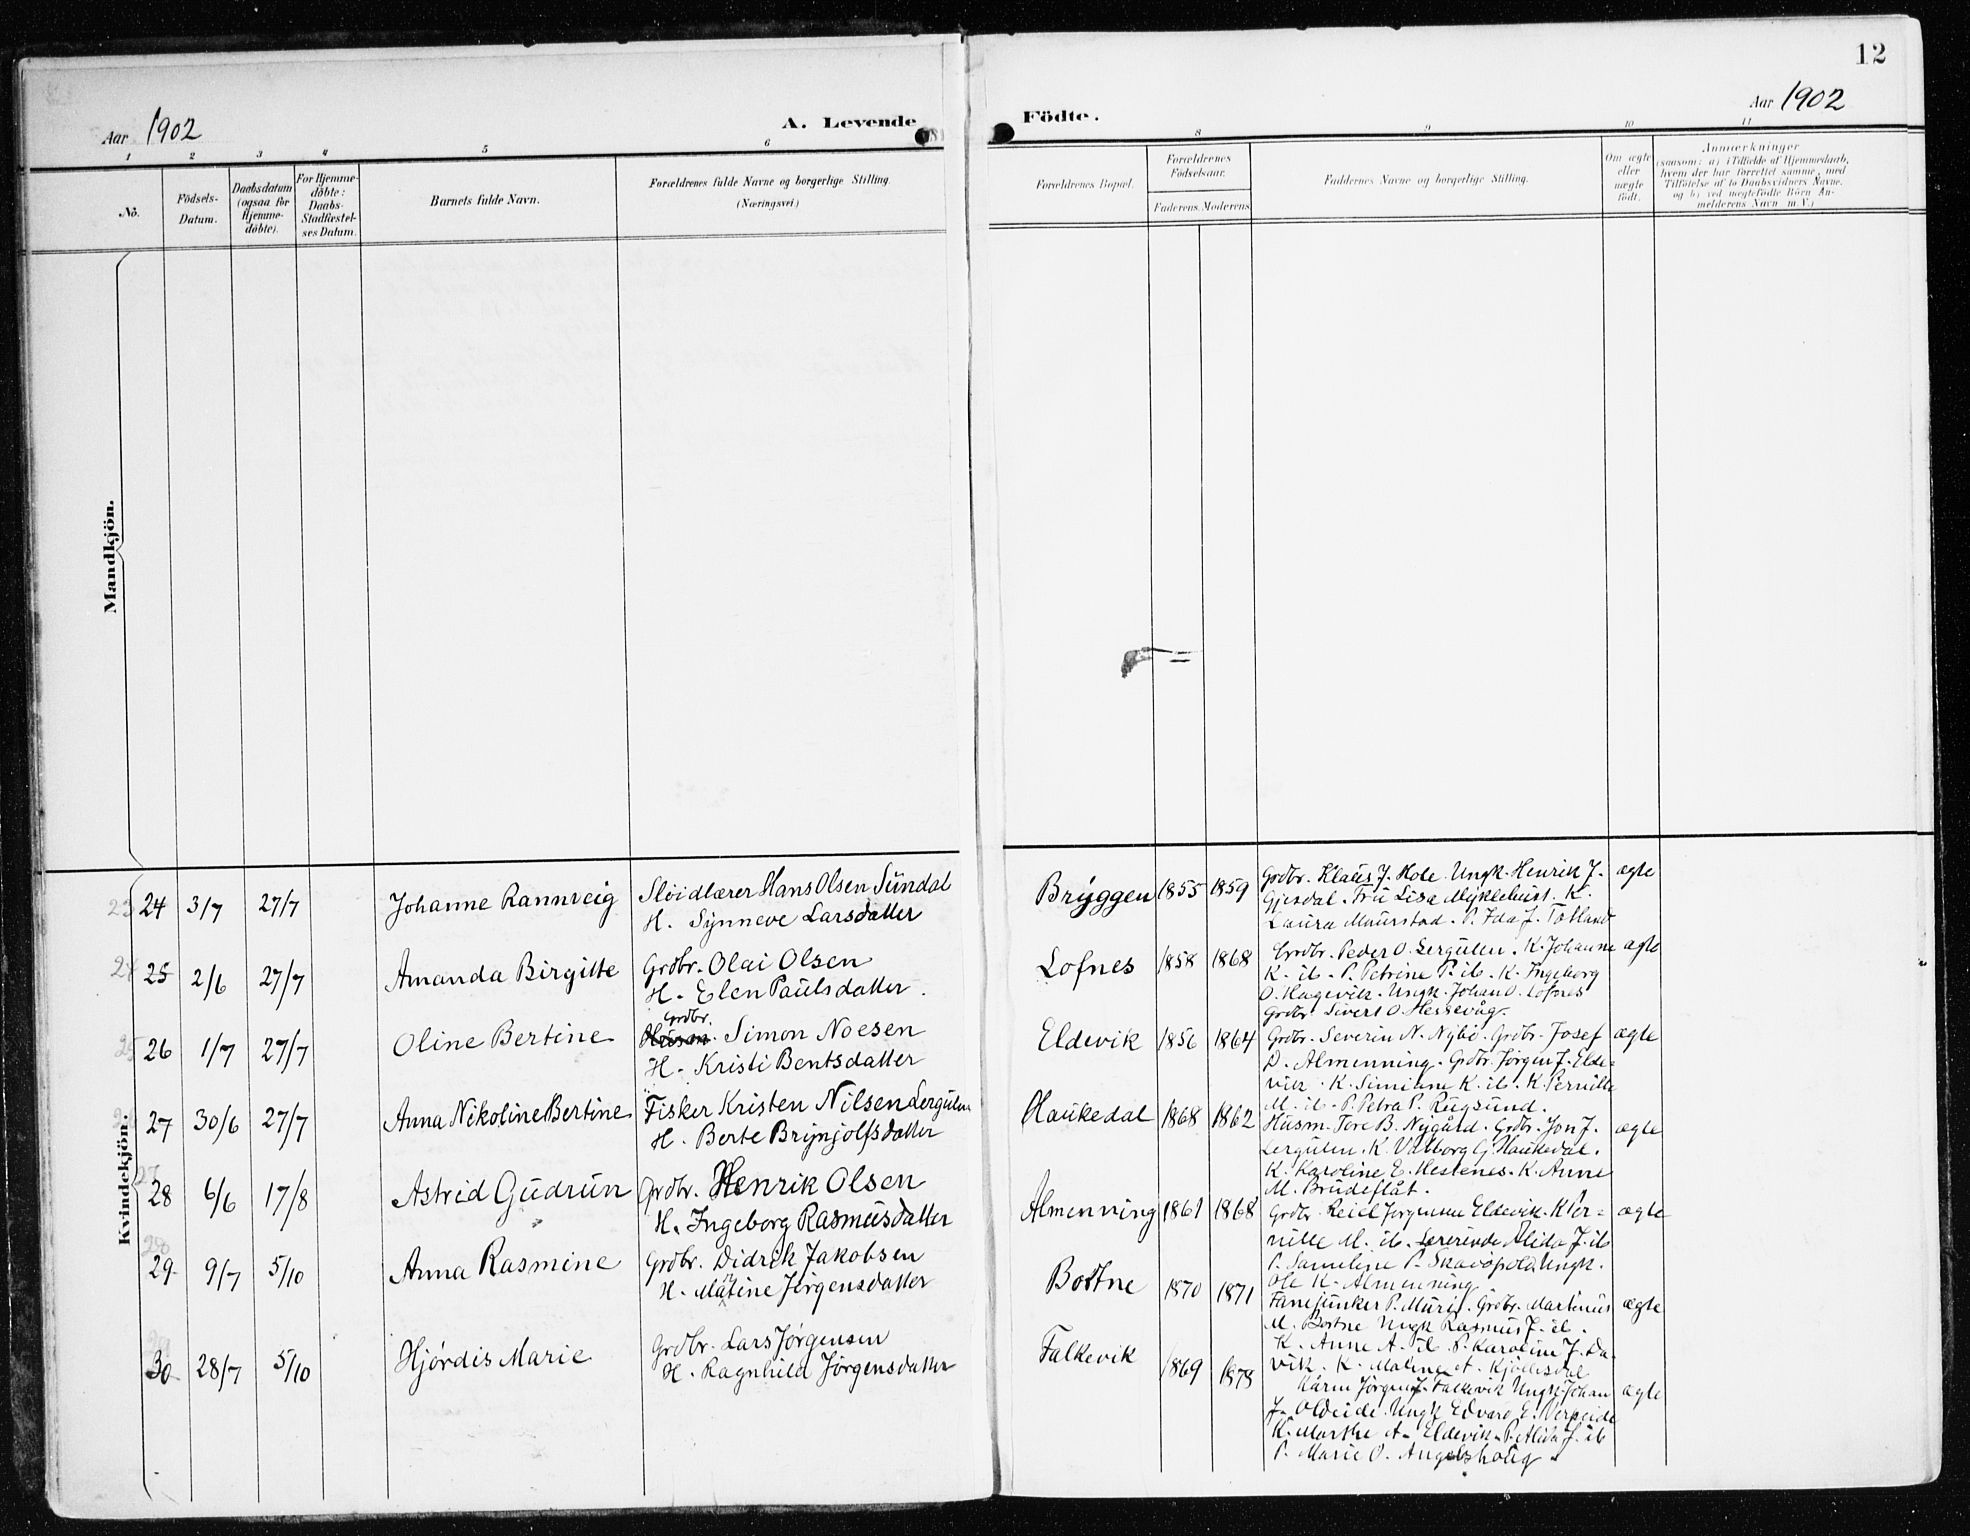 12
Aar 1902
A. Levende
Födte.
Aar 1902
1 2 3 4 5 6 8 9 10 11
No.
Födsels-
Datum.
Daabsdatum
(ogsaa for
Hjemme-
döbte).
For Hjemme-
döbte:
Daabs-
Stadfæstel-
ses Datum.
Barnets fulde Navn.
Forældrenes fulde Navne og borgerlige Stilling.
(Næringsvei)
Forældrenes Bopæl.
Forældrenes
Födselsaar.
Faderens. Moderens.
Faddernes Navne og borgerlige Stilling.
Om ægte
eller
uægte
födt.
Anmærkninger
(saasom: a) i Tilfælde af Hjemmedaab,
hvem der har forrettet samme, med
Tilföielse af to Daabsvidners Navne.
og b) ved uægtefödte Börn An-
melderens Navn m. V.)
Mandkjön.
Kvindekjön.
23 24 3/7 27/7 Johanne Rannveig
Sløidlærer Hans Olsen Sündal
H. Synneve Larsdatter
Bryggen 1855 1859
Grdbr. Klaus J. Hole. Ungk. Henrik J.
Gjesdal. Fru Lisa Myklebust. K.
Laura Maurstad. P. Ida J. Totland
ægte
24 25 2/6 27/7 Amanda Birgitte
Grdbr. Olai Olsen
H. Elen Paulsdatter.
Lofnes 1858 1868
Grdbr. Peder O. Lergulen. K. Johanne
K. ib. P. Petrine P. ib. K. Ingeborg
O. Hagevik. Ungk. Johan O. Lofnes
Grdbr. Sivert O. Hessevåg.
ægte
25 26 1/7 27/7 Oline Bertine
Grdbr.
Simon Noesen
H. Kristi Bentsdatter
Eldevik 1856 1864
Grdbr. Severin N. Nybö. Grdbr. Josef
D. Almenning. Grdbr. Jørgen J. Elde=
vik. K. Simiane K. ib. K. Pernille
M. ib. P. Petra P. Rugsund.
ægte
27 30/6 27/7 Anna Nikoline Bertine
Fisker Kristen Nilsen Lergulen
H. Berte Brynjolfsdatter
Haukedal 1868 1862
Husm. Tore B. Nygård. Grdbr. Jon J.
Lergulen. K. Valborg G. Haukedal.
K. Karoline E. Hestenes. K. Anne
M. Brudeflåt.
ægte
27 28 6/6 17/8 Astrid Gudrun
Grdbr. Henrik Olsen
H. Ingeborg Rasmusdatter
Almenning 1861 1868
Grdbr. Reiel Jørgensen Eldevik. K. Per=
nille M. ib. Lærerinde Alida J. ib
P. Sameline P. Ungk.
Ole K. Almenning
ægte
28 29 9/7 5/10 Anna Rasmine
Grdbr. Didrik Jakobsen
H. Matine Jörgensdatter
Bortne 1870 1871
Fanejunker P. Muri. Grdbr. Martinus
M. Bortne Ungk Rasmus J. ib.
K. Anne A. ib. P. Karoline J. Da=
vik. K. Malene A.
ægte
30 28/7 5/10 Hjördis Marie
Grdbr. Lars Jørgensen
H. Ragnhild Jörgensdatter
Falkevik 1869 1878
Kårm. Jörgen J. Falkevik Ungk. Johan
J. Oldeide. Ungk Edvard E.
K. Marthe A. Eldevik. P. Alida J. ib
P. Marie O. Angelshoug
ægte